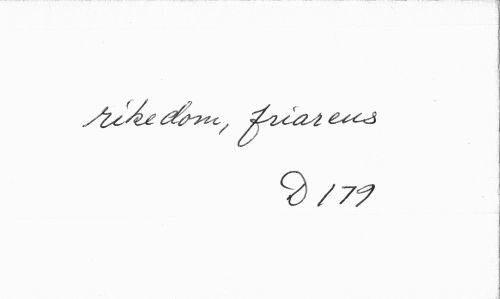 rikedom, friarens
D 179